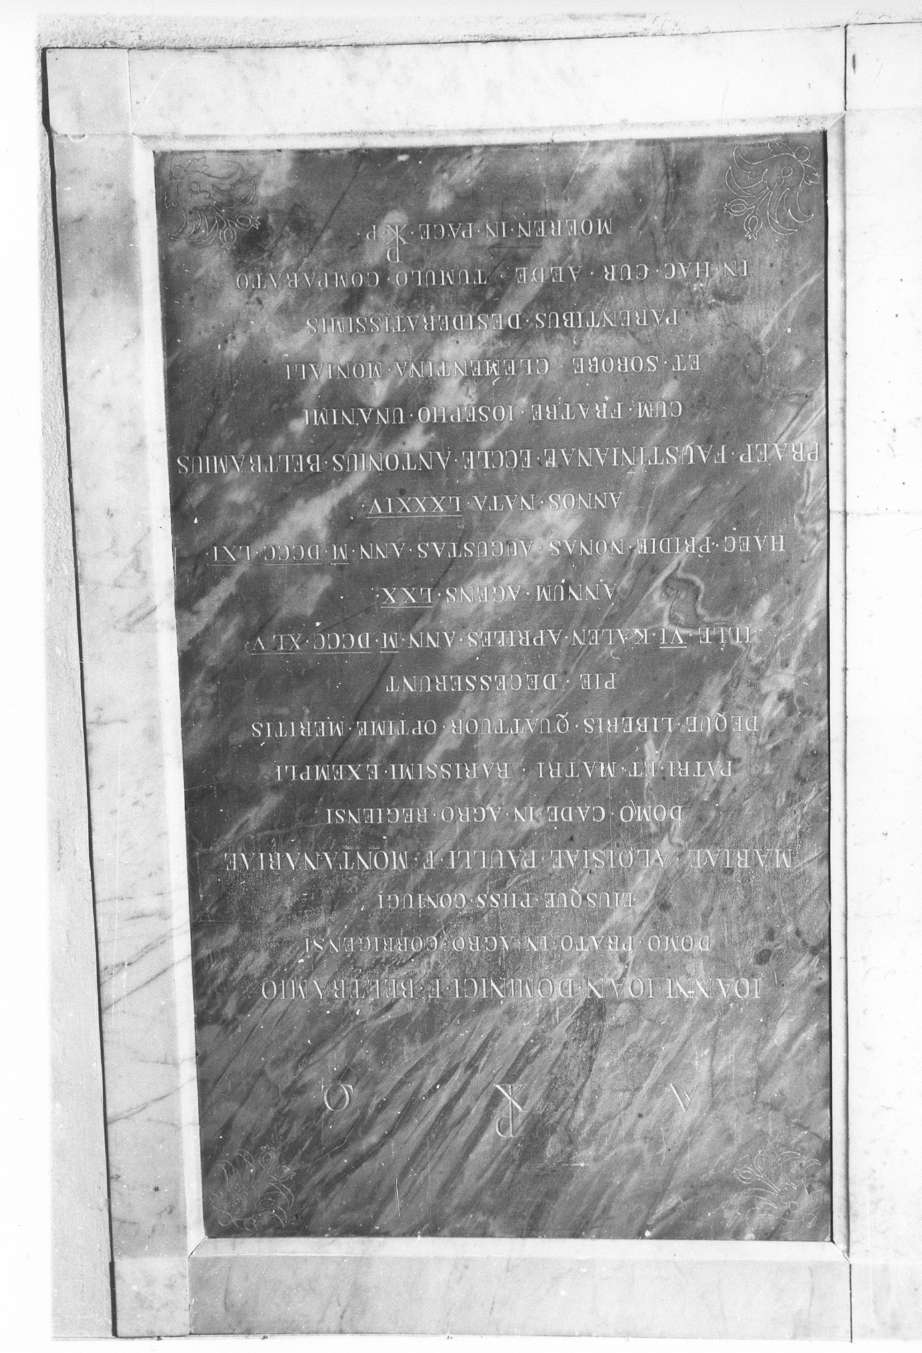 Α ☧ Ω
IOANNI IOAN · DOMINICI · F · BELTRAMIO
DOMO · PRATO · IN · AGRO · CORRIGIENSI
EIUSQUE · PIISS · CONIUGI
MARIAE · ALOISIAE · PAULLI · F · MONTANARIAE
DOMO · CADE · IN · AGRO · REGIENSI
PATRI · ET · MATRI · RARISSIMI · EXEMPLI
DEQUE · LIBERIS · QUATTUOR · OPTIME · MERITIS
PIE · DECESSERUNT
ILLE · VI · KALEN · APRILES · ANN · M · DCCC · XL · V
ANNUM · AGENS · LXX ·
HAEC · PRIDIE · NONAS · AUGUSTAS · ANN · M · DCCC · LXI ·
ANNOS · NATA · LXXXIV ·
PRAEP · FAUSTINIANAE · ECCLE · ANTONIUS · BELTRAMIUS
CUM · FRATRE · IOSEPHO · UNANIMI
ET · SORORE · CLEMENTINA · MONIALI
PARENTIBUS · DESIDERATISSIMIS
IN · HAC · CUR · AEDE · TUMULO · COMPARATO
MOEREN · IN · PACE · ☧ ·